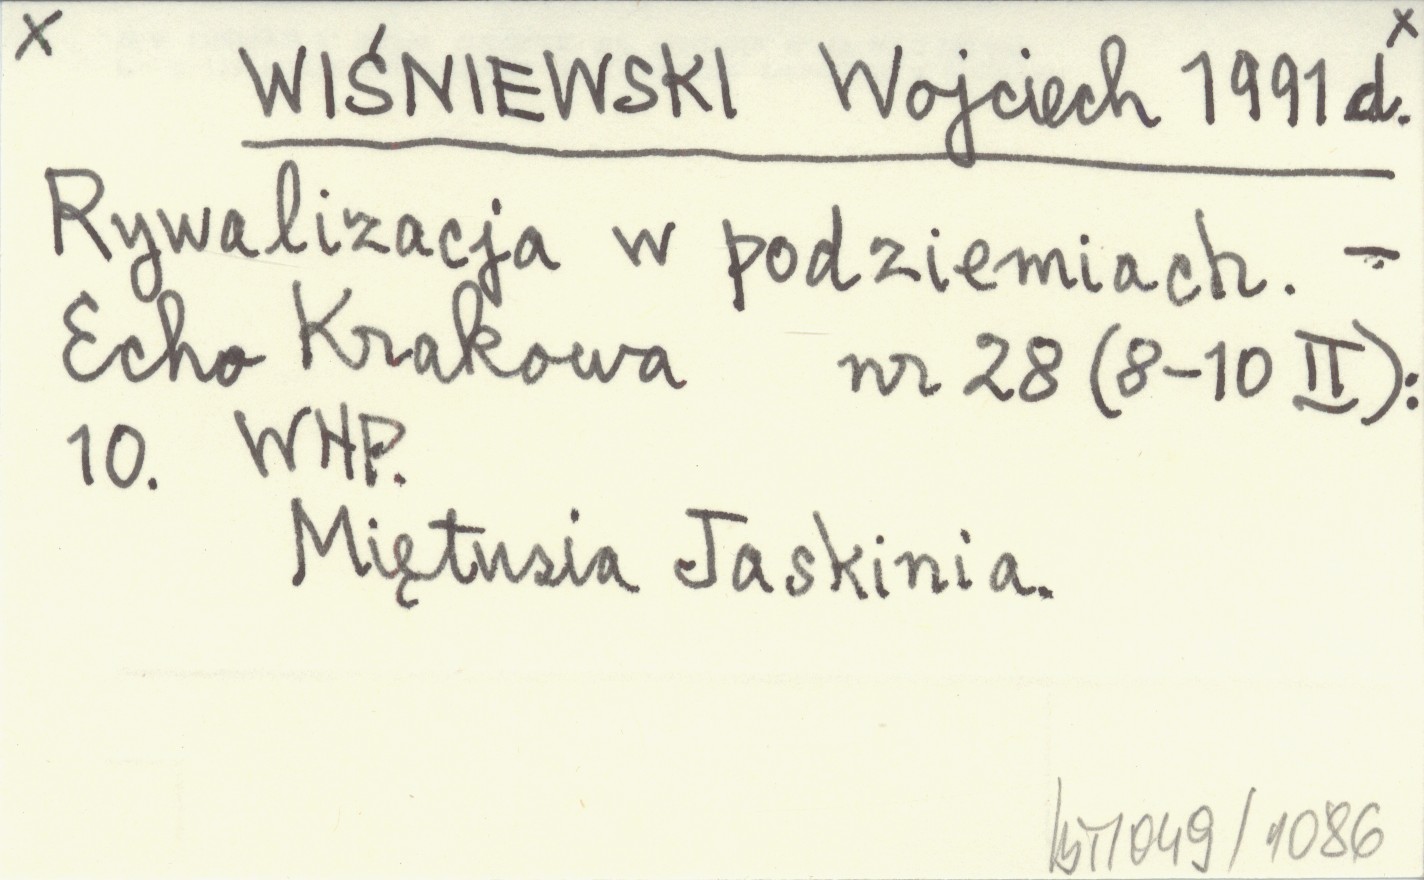 x x
WIŚNIEWSKI Wojciech 1991 d.
Rywalizacja w podziemiach. -
Echo Krakowa nr 28 (8-10 II):
10. WHP.
Miętusia Jaskinia.
049/1086